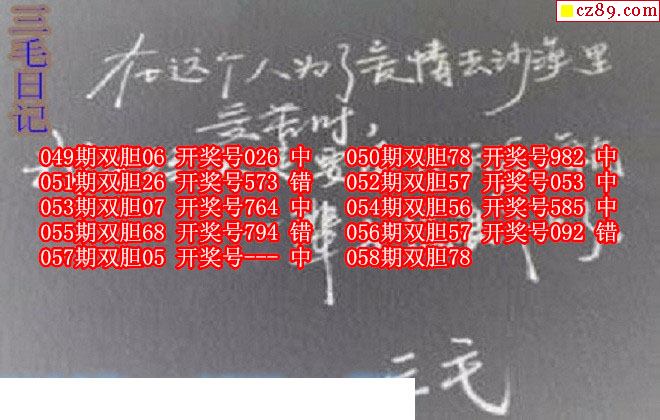 cz89.com
三毛日记
在这个人为了爱情去沙漠里
受苦时，
049期双胆06 开奖号026 中 050期双胆78 开奖号982 中
051期双胆26 开奖号573 错 052期双胆57 开奖号053 中
053期双胆07 开奖号764 中 054期双胆56 开奖号585 中
055期双胆68 开奖号794 错 056期双胆57 开奖号092 错
057期双胆05 开奖号--- 中 058期双胆78
三毛